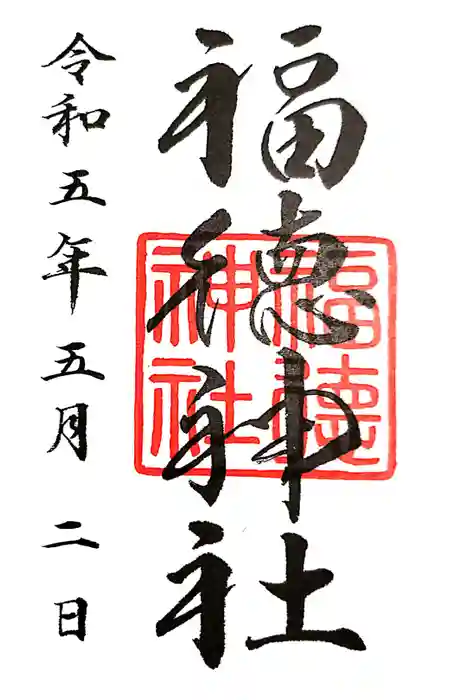 福徳神社
福德神社
令和五年五月二日